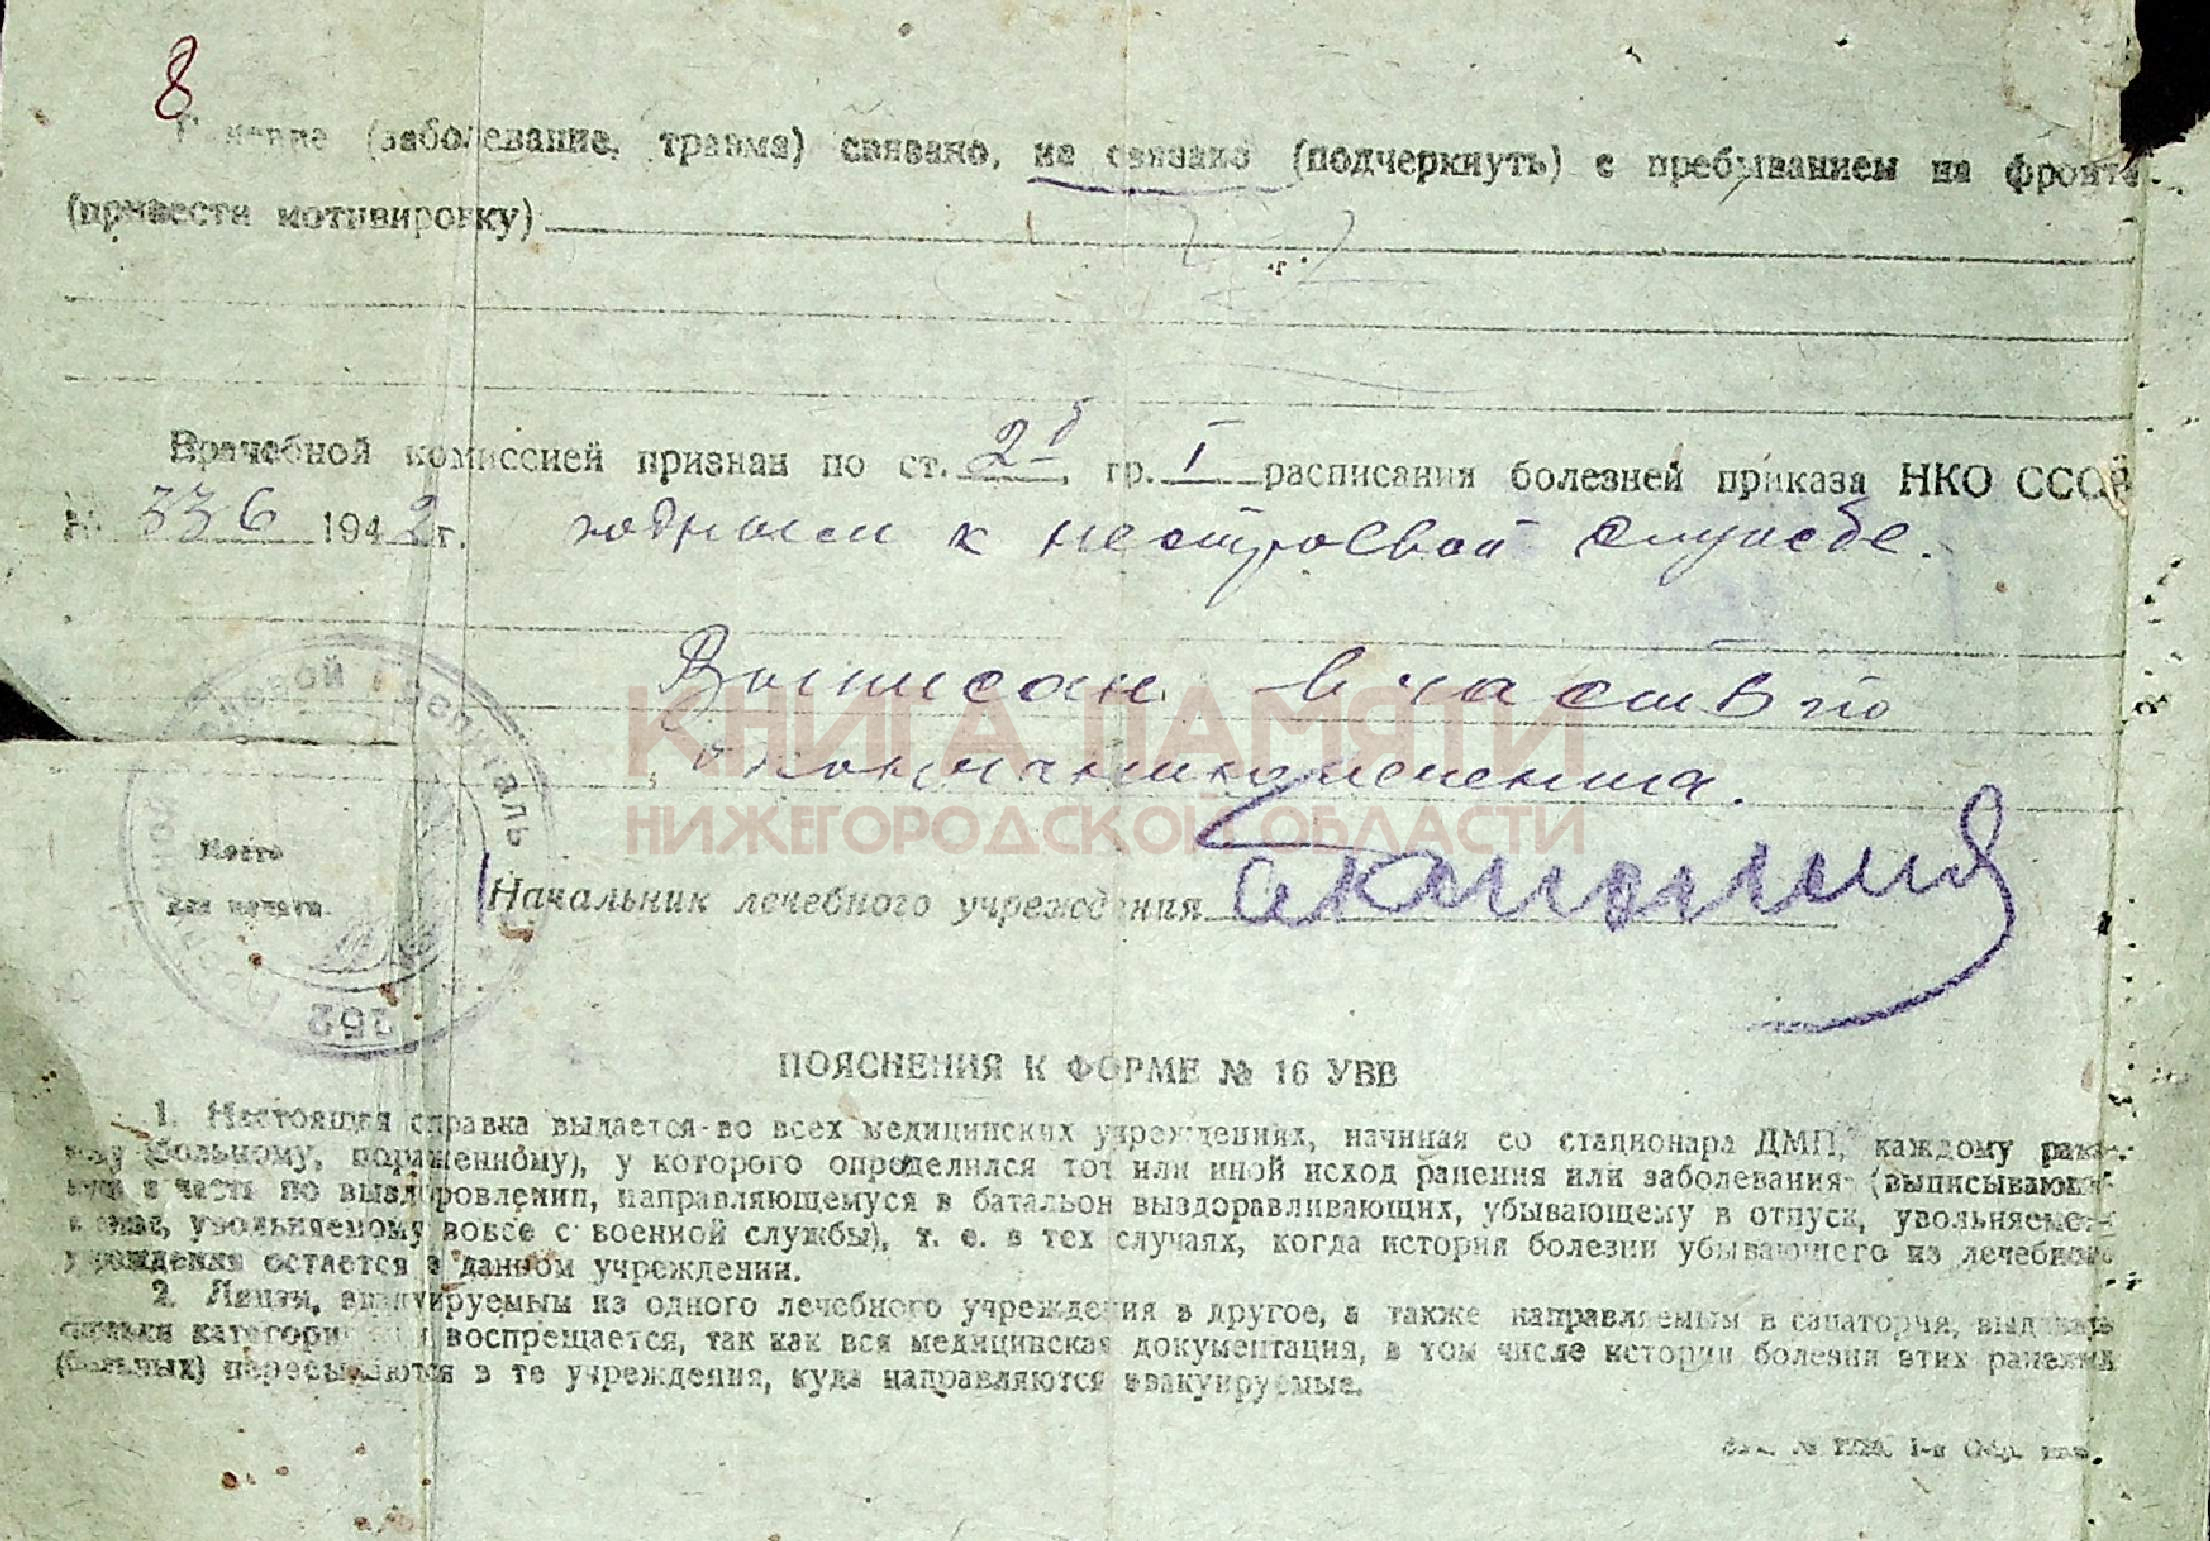 8
Ранение (заболевание, травма) связано, не связано (подчеркнуть) с пребыванием на фронте
(привести мотивировку)
Врачебной комиссией признан по ст. 2б гр. I расписания болезней приказа НКО СССР
№ 336 1942 г. годным к нестроевой службе.
Выписан в часть по
окончании лечения.
КНИГА ПАМЯТИ
НИЖЕГОРОДСКОЙ ОБЛАСТИ
Место
для печати.
госпиталь
Начальник лечебного учреждения
ПОЯСНЕНИЯ К ФОРМЕ № 16 УВВ
1. Настоящая справка выдается во всех медицинских учреждениях, начиная со стационара ДМП, каждому ране-
ному (больному, пораженному), у которого определился тот или иной исход ранения или заболевания (выписывающе-
муся в часть по выздоровлении, направляющемуся в батальон выздоравливающих, убывающему в отпуск, увольняемо-
увольняемому вовсе с военной службы), т. е. в тех случаях, когда история болезни убывающего из лечебного
учреждения остается в данном учреждении.
2. Лицам, эвакуируемым из одного лечебного учреждения в другое, а также направляемым в санаторий, выдавать
справки категорически воспрещается, так как вся медицинская документация, в том числе истории болезни этих раненых
(больных) пересылаются в те учреждения, куда направляются эвакуируемые.